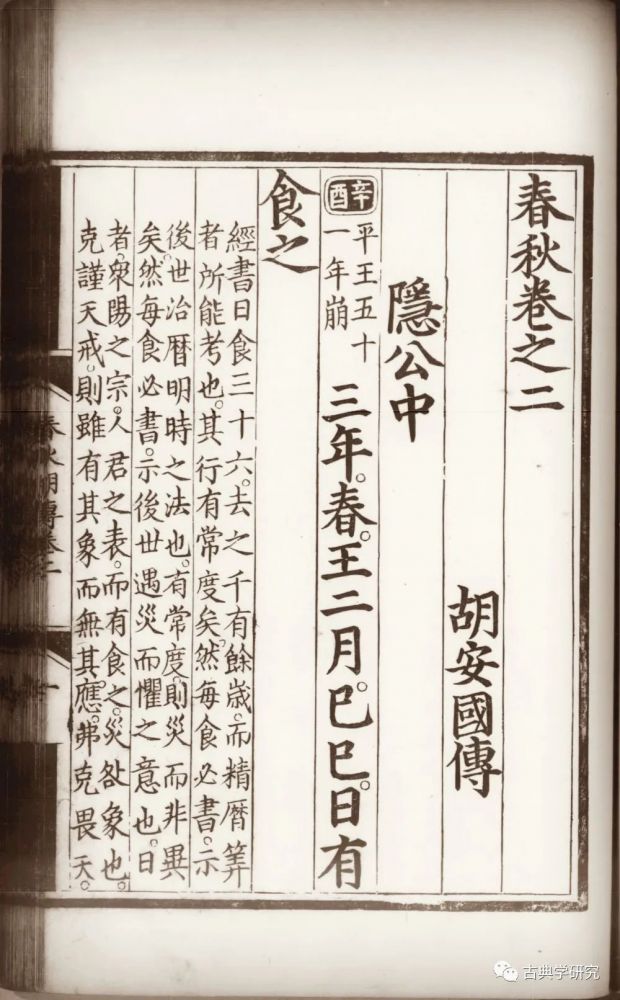 春秋卷之二
胡安國傳
隱公中
辛酉
平王五十
一年崩
三年。春。王二月。己巳。日有
食之
經書日食三十六。去之千有餘歳。而精曆筭
者所能考也。其行有常度矣。然每食必書。示
後世治曆明時之法也。有常度。則災而非異
矣。然每食必書。示後世遇災而懼之意也。日
者。衆陽之宗。人君之表。而有食之。災咎象也。
克謹天戒。則雖有其象而無其應。弗克畏天。
春秋胡傳卷二
一
古典学研究